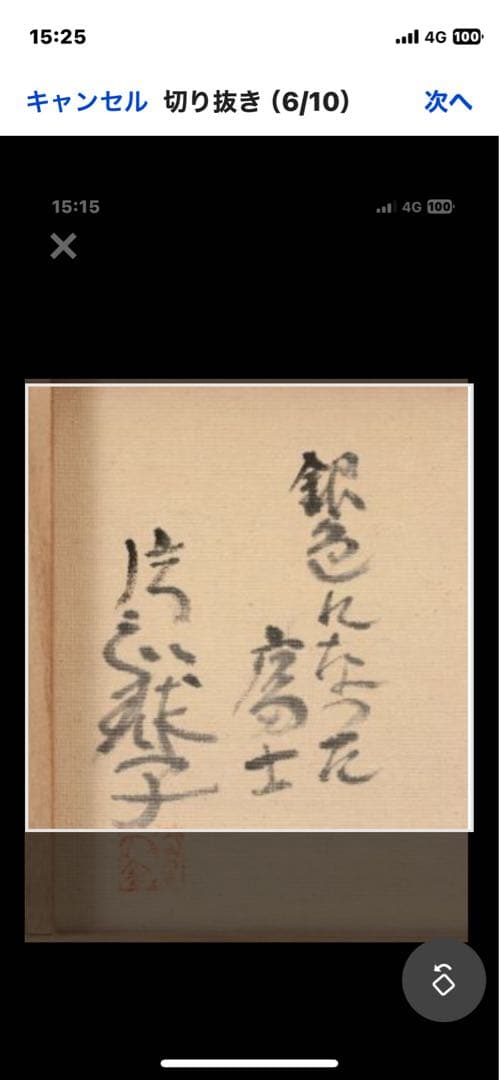 15:25
4G 100
キャンセル 切り抜き (6/10) 次へ
15:15
4G 100
銀色になった
富士
子